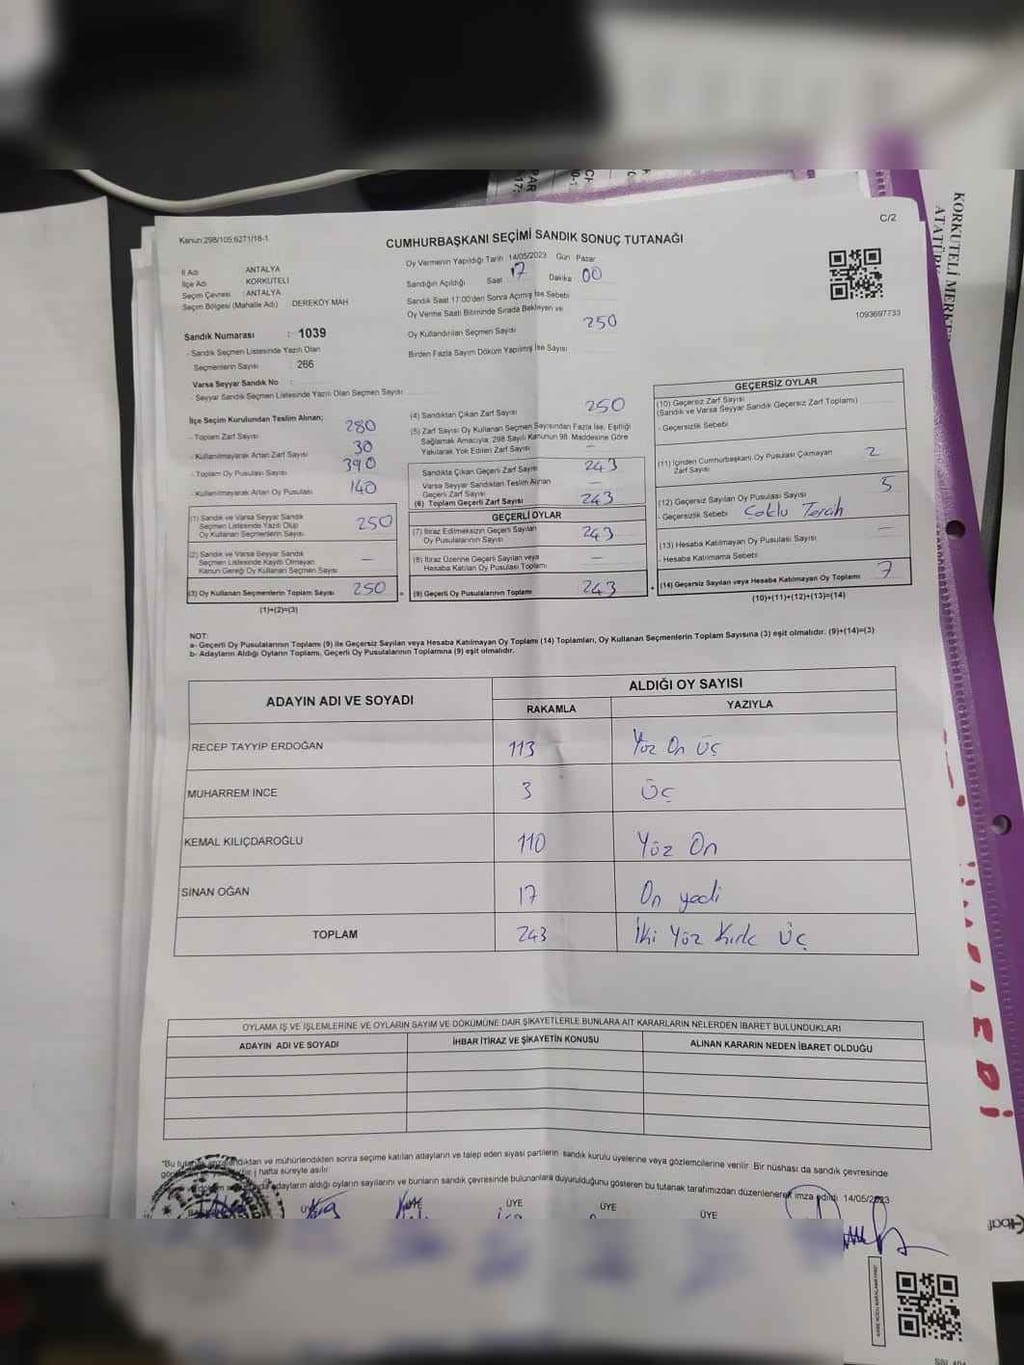 C/2
Kanun:298/105;6271/18-1
CUMHURBAŞKANI SEÇİMİ SANDIK SONUÇ TUTANAĞI
İl Adı : ANTALYA
İlçe Adı : KORKUTELİ
Seçim Çevresi : ANTALYA
Seçim Bölgesi (Mahalle Adı) : DEREKÖY MAH
Sandık Numarası : 1039
- Sandık Seçmen Listesinde Yazılı Olan
Seçmenlerin Sayısı : 266
Varsa Seyyar Sandık No :
- Seyyar Sandık Seçmen Listesinde Yazılı Olan Seçmen Sayısı
Oy Vermenin Yapıldığı Tarih 14/05/2023 Gün Pazar
Sandığın Açıldığı Saat 17 Dakika 00
Sandık Saat 17:00'den Sonra Açılmış İse Sebebi
Oy Verme Saati Bitiminde Sırada Bekleyen ve
Oy Kullandırılan Seçmen Sayısı 250
Birden Fazla Sayım Döküm Yapılmış İse Sayısı
1093697733
İlçe Seçim Kurulundan Teslim Alınan;
- Toplam Zarf Sayısı 280
- Kullanılmayarak Artan Zarf Sayısı 30
- Toplam Oy Pusulası Sayısı 390
- Kullanılmayarak Artan Oy Pusulası 140
(1) Sandık ve Varsa Seyyar Sandık
Seçmen Listesinde Yazılı Olup
Oy Kullanan Seçmenlerin Sayısı 250
(2) Sandık ve Varsa Seyyar Sandık
Seçmen Listesinde Kayıtlı Olmayan
Kanun Gereği Oy Kullanan Seçmen Sayısı —
(3) Oy Kullanan Seçmenlerin Toplam Sayısı 250
(1)+(2)=(3)
(4) Sandıktan Çıkan Zarf Sayısı 250
(5) Zarf Sayısı Oy Kullanan Seçmen Sayısından Fazla İse, Eşitliği
Sağlamak Amacıyla, 298 Sayılı Kanunun 98. Maddesine Göre
Yakılarak Yok Edilen Zarf Sayısı —
Sandıkta Çıkan Geçerli Zarf Sayısı 243
Varsa Seyyar Sandıktan Teslim Alınan
Geçerli Zarf Sayısı —
(6) Toplam Geçerli Zarf Sayısı 243
GEÇERLİ OYLAR
(7) İtiraz Edilmeksizin Geçerli Sayılan
Oy Pusulalarının Sayısı 243
(8) İtiraz Üzerine Geçerli Sayılan veya
Hesaba Katılan Oy Pusulası Toplamı —
(9) Geçerli Oy Pusulalarının Toplamı 243
GEÇERSİZ OYLAR
(10) Geçersiz Zarf Sayısı
(Sandık ve Varsa Seyyar Sandık Geçersiz Zarf Toplamı)
- Geçersizlik Sebebi
(11) İçinden Cumhurbaşkanı Oy Pusulası Çıkmayan
Zarf Sayısı 2
(12) Geçersiz Sayılan Oy Pusulası Sayısı 5
- Geçersizlik Sebebi Çoklu Tercih
(13) Hesaba Katılmayan Oy Pusulası Sayısı —
- Hesaba Katılmama Sebebi
(14) Geçersiz Sayılan veya Hesaba Katılmayan Oy Toplamı 7
(10)+(11)+(12)+(13)=(14)
NOT:
a- Geçerli Oy Pusulalarının Toplamı (9) ile Geçersiz Sayılan veya Hesaba Katılmayan Oy Toplamı (14) Toplamları, Oy Kullanan Seçmenlerin Toplam Sayısına (3) eşit olmalıdır. (9)+(14)=(3)
b- Adayların Aldığı Oyların Toplamı, Geçerli Oy Pusulalarının Toplamına (9) eşit olmalıdır.
ADAYIN ADI VE SOYADI ALDIĞI OY SAYISI
RAKAMLA YAZIYLA
RECEP TAYYİP ERDOĞAN 113 Yüz On Üç
MUHARREM İNCE 3 Üç
KEMAL KILIÇDAROĞLU 110 Yüz On
SİNAN OĞAN 17 On yedi
TOPLAM 243 İki Yüz Kırk Üç
OYLAMA İŞ VE İŞLEMLERİNE VE OYLARIN SAYIM VE DÖKÜMÜNE DAİR ŞİKAYETLERLE BUNLARA AİT KARARLARIN NELERDEN İBARET BULUNDUKLARI
ADAYIN ADI VE SOYADI İHBAR İTİRAZ VE ŞİKAYETİN KONUSU ALINAN KARARIN NEDEN İBARET OLDUĞU
"Bu ve mühürlendikten sonra seçime katılan adayların ve talep eden siyasi partilerin sandık kurulu üyelerine veya gözlemcilerine verilir. Bir nüshası da sandık çevresinde
hafta süreyle asılır.
adayların aldığı oyların sayılarını ve bunların sandık çevresinde bulunanlara duyurulduğunu gösteren bu tutanak tarafımızdan düzenlenerek imza edildi. 14/05/2023
ÜYE ÜYE ÜYE
KORKUTELİ MERKEZ